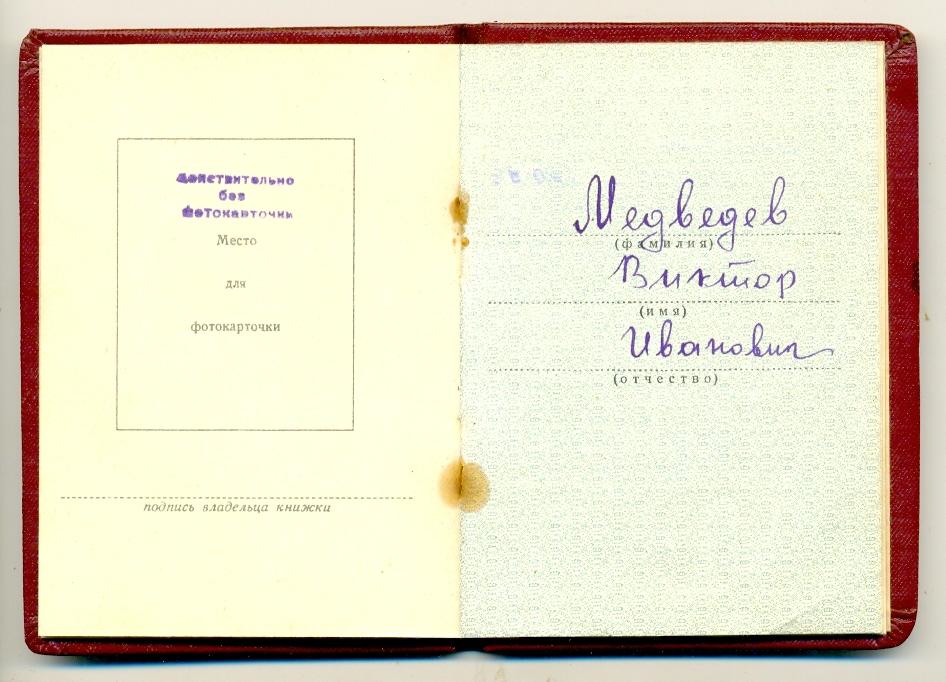 Действительно
без
фотокарточки
Место
для
фотокарточки
подпись владельца книжки
Медведев
(фамилия)
Виктор
(имя)
Иванович
(отчество)